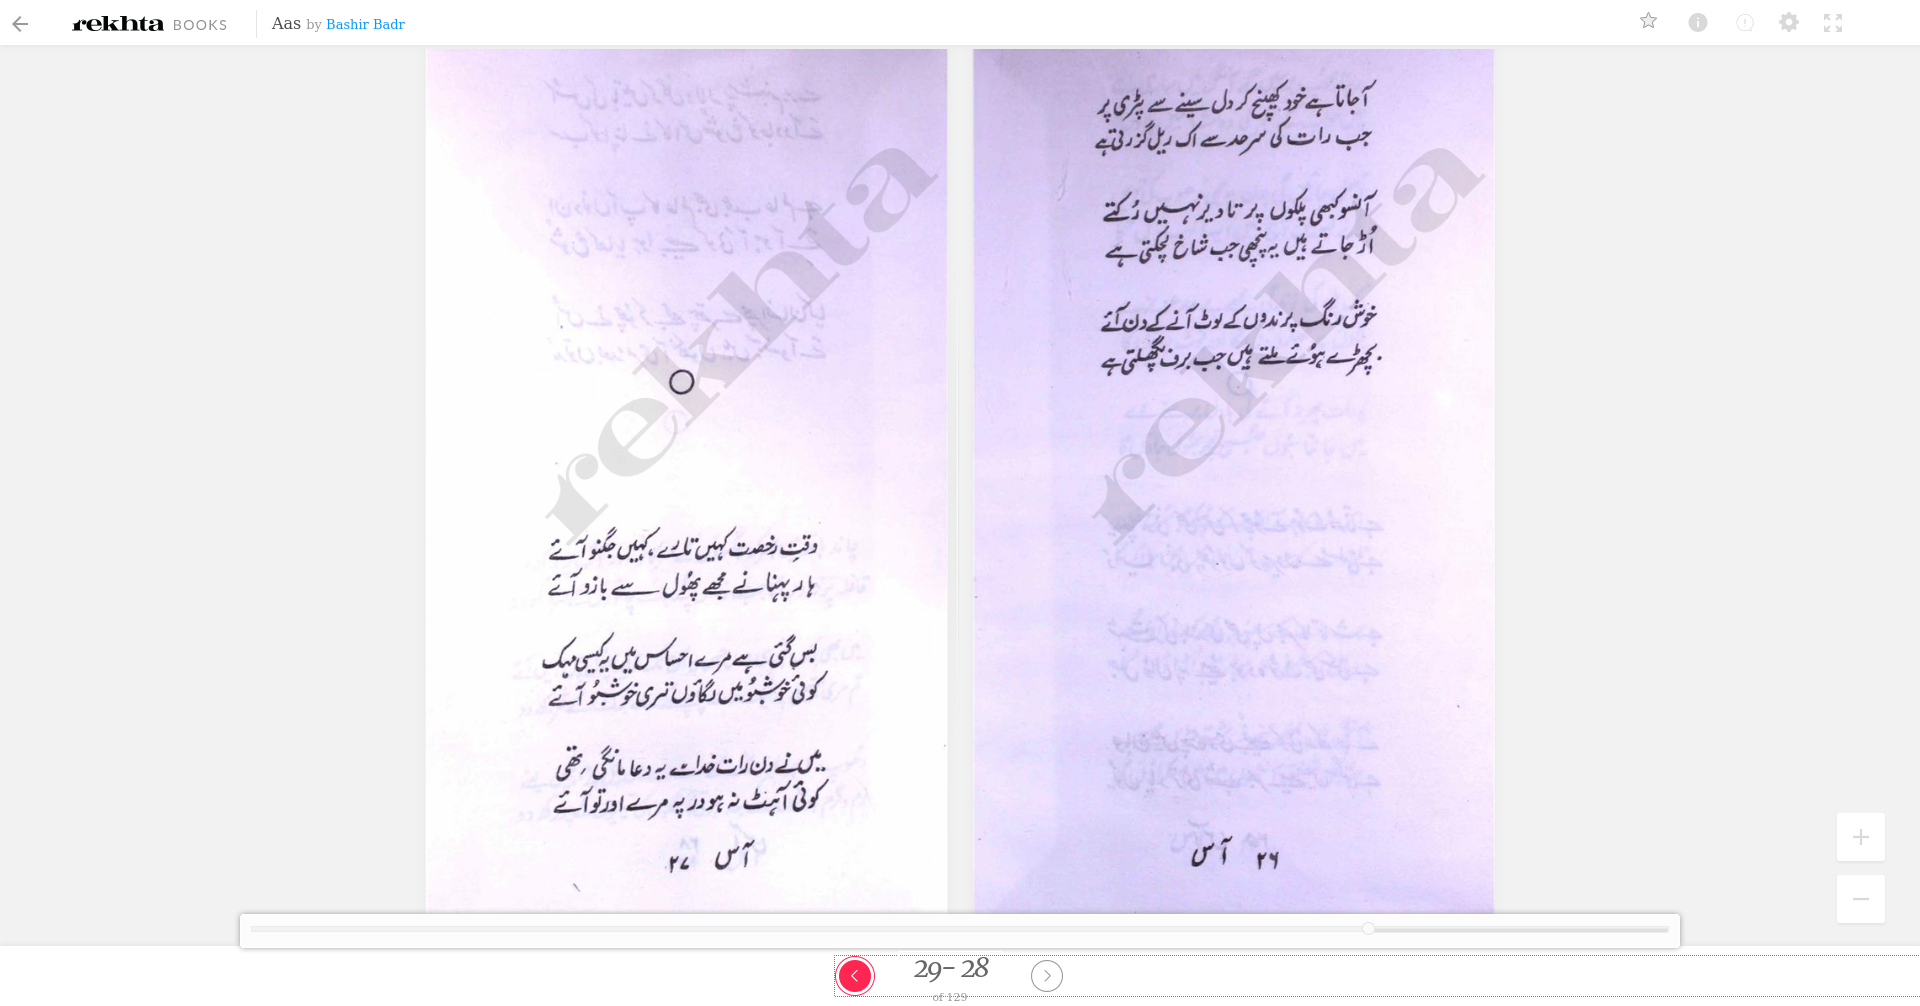 rekhta BOOKS
Aas by Bashir Badr
آجاتا ہے خود کھینچ کر دل سینے سے پٹری پر
جب رات کی سرحد سے اک ریل گزرتی ہے
آنسو کبھی پلکوں پر تا دیر نہیں رُکتے
اُڑ جاتے ہیں یہ پنچھی جب شاخ لچکتی ہے
خوش رنگ پرندوں کے لوٹ آنے کے دن آئے
بچھڑے ہوئے ملتے ہیں جب برف پگھلتی ہے
۲۶ آس
rekhta
وقتِ رخصت کہیں تارے، کہیں جگنو آئے
ہار پہنانے مجھے پھُول سے بازو آئے
بس گئی ہے مرے احساس میں یہ کیسی مہک
کوئی خوشبُو میں لگاؤں تری خوشبُو آئے
میں نے دن رات خدا سے یہ دعا مانگی تھی
کوئی آہٹ نہ ہو در پہ مرے اور تو آئے
آس ۲۷
rekhta
29- 28
of 129